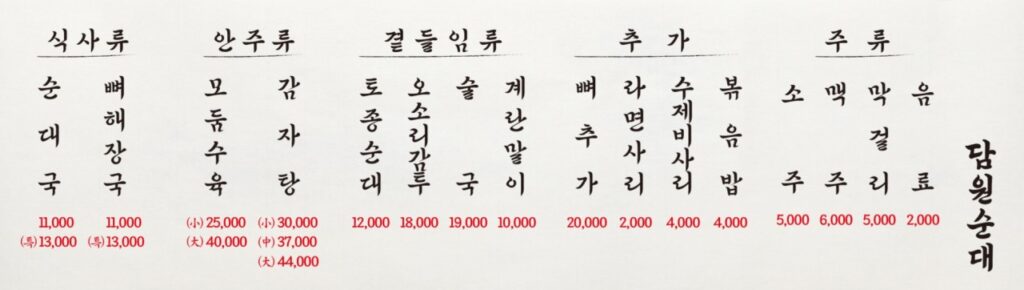 식사류
순대국
11,000
(특)13,000
뼈해장국
11,000
(특)13,000
안주류
모둠수육
(小)25,000
(大)40,000
감자탕
(小)30,000
(中)37,000
(大)44,000
곁들임류
토종순대
12,000
오소리감투
18,000
술국
19,000
계란말이
10,000
추가
뼈추가
20,000
라면사리
2,000
수제비사리
4,000
볶음밥
4,000
주류
소주
5,000
맥주
6,000
막걸리
5,000
음료
2,000
담원순대